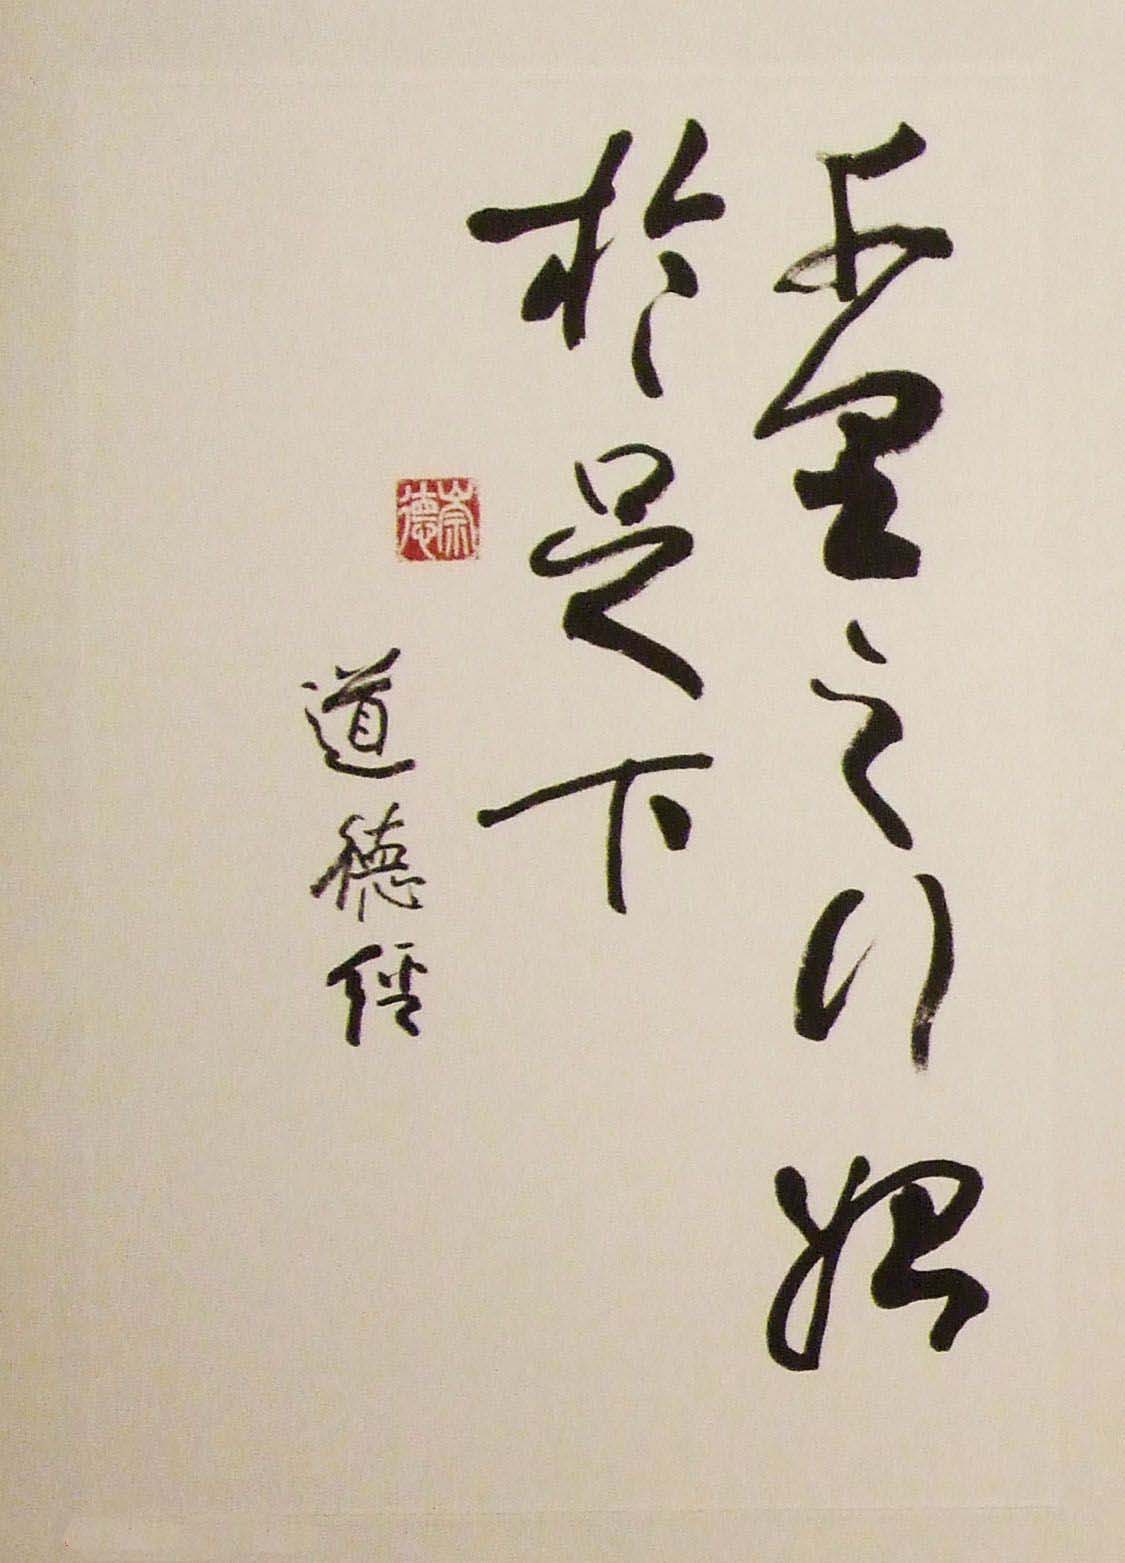 千里之行始
於足下
道德經
崇德